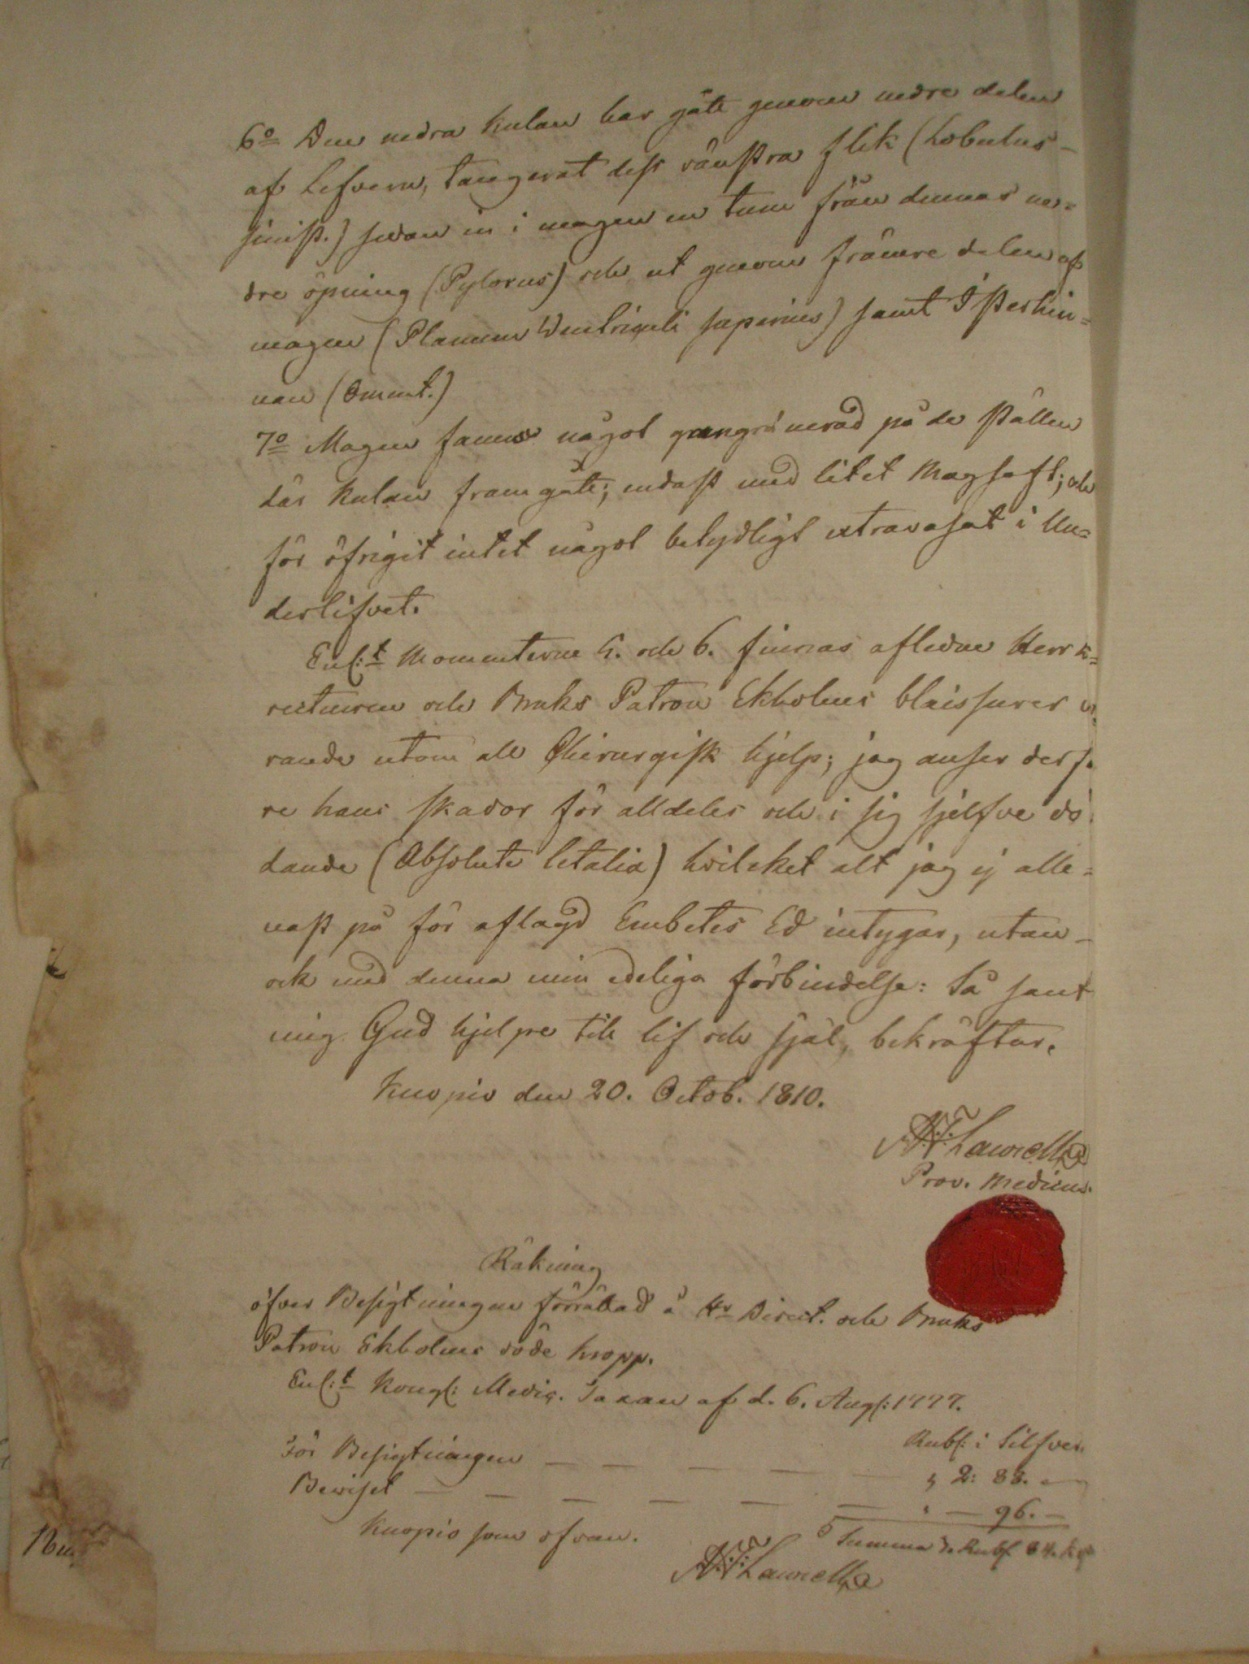 6o Den nedra kulan har gått genom nedre delen
af Lefvern, tangerat dess vänstra flik (Lobulus
sinist.) sedan in i magen en tum från dennas ne=
dre öpning (Pylorus) och ut genom främre delen af
magen (Planum Ventriculi superius) samt Isterhin=
nan (Oment.)
7o Magen fanns något gangrenerad på de ställen
där kulan framgått; endast med litet Magsaft; och
för öfrigit intet något betydligt extravasat i Un=
derlifvet.
Enl:t Momenterne 5. och 6. finnas aflidne Herr
recteuren och Bruks Patron Ekholms blaissurer
rande utom all Chirurgisk hjelp; jag anser derfö
re hans skador för alldeles och i sig sjelfve dö
dande (Absolute letalia) hvilcket alt jag ej alle=
nast på för aflagd Embetes Ed intygar, utan
ock med denna min edeliga förbindelse: Så sant
mig Gud hjelpe till lif och själ, bekräftar.
Kuopio den 20. Octob. 1810.
Laurell
Prov. Medicus.
Räkning
öfver Besigtningen förrättad å Hr Direct. och Bruks
Patron Ekholms döde kropp.
Enl:t Kongl: Medic. Taxan af d. 6. Aug: 1777.
Rubl: i Silfver
För Besigtningen — — — — — 2: 88. —
Beviset — — — — — — — 96. —
Kuopio som ofvan. Summa
Laurell